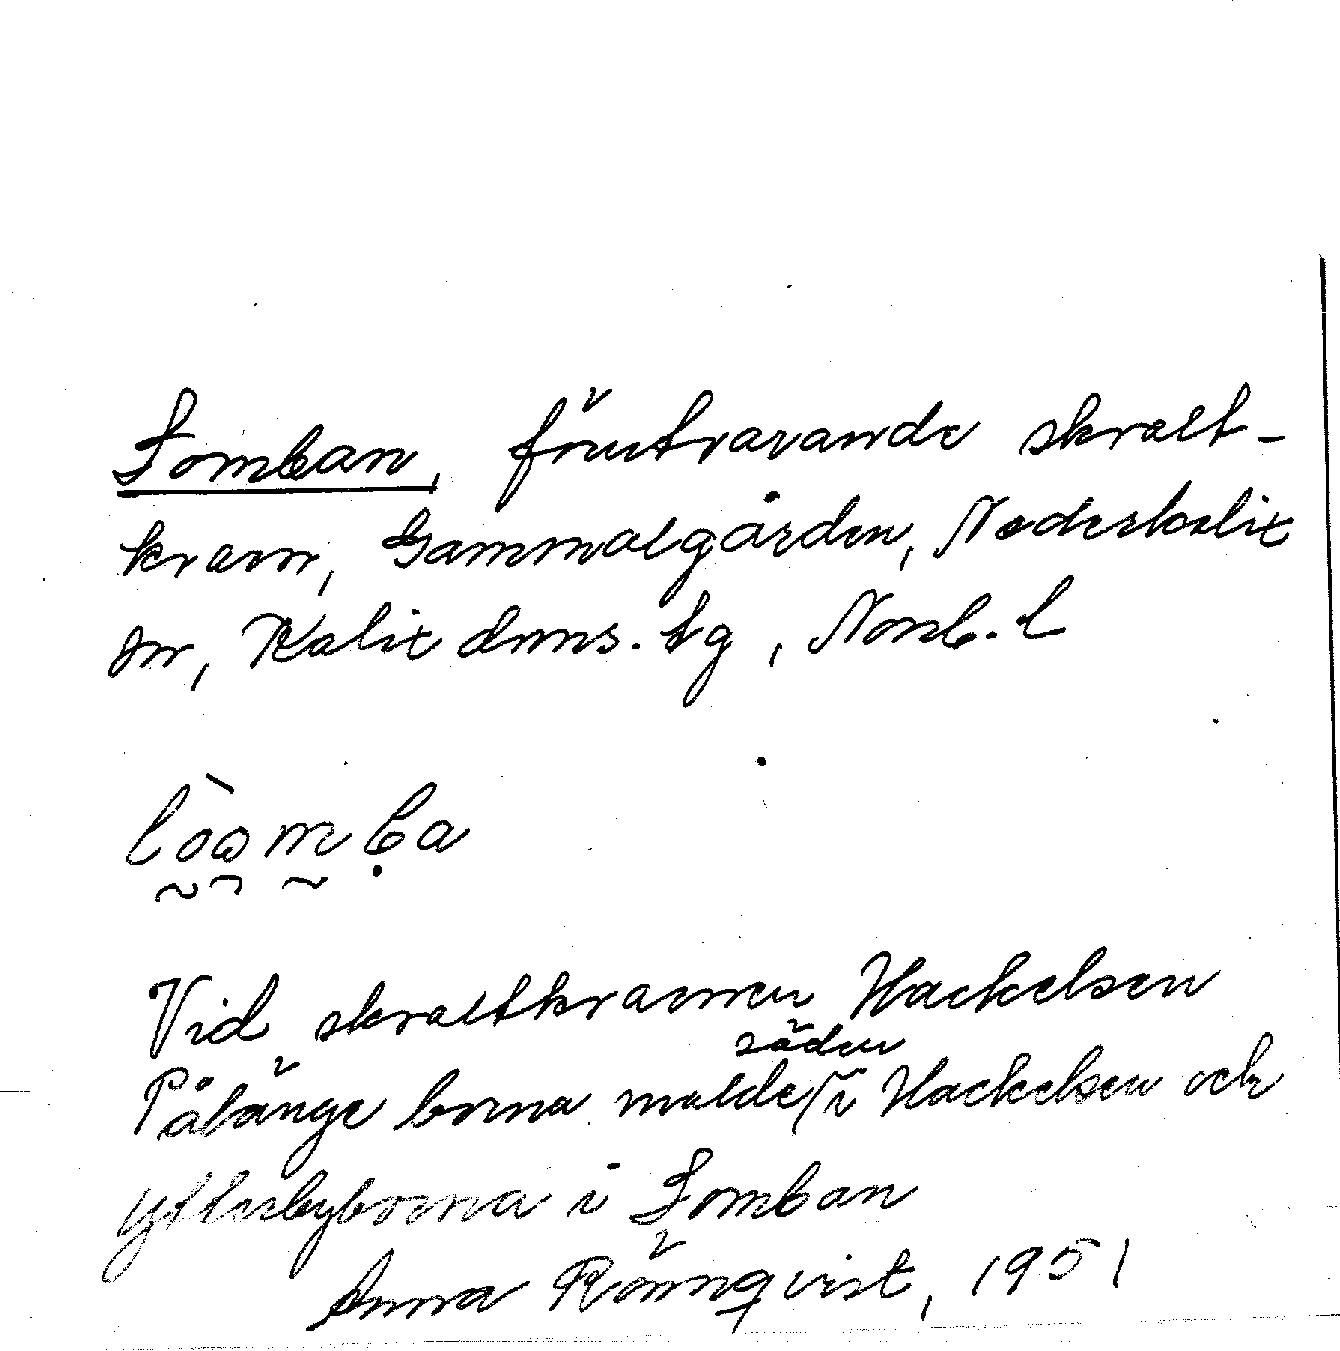 Lomban, försvarande skralt-
kvarn, Gammalgården, Nederkalix
sn, Kalix doms. tg, Norrb. l
lòomba
Vid skraltkvarnen Hackelsen
säden
Pålänge borna malde i Hackelsen och
Ytterbyborna i Lomban
Anna Rönnqvist, 1951